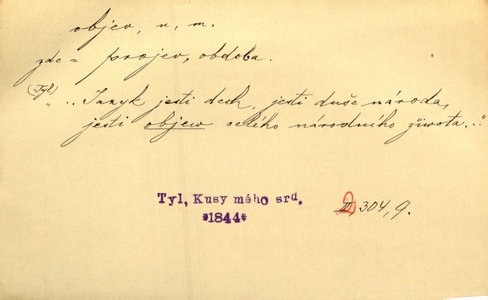 objev, u, m.
zde = projev, obdoba.
(Tyl) „.. Jazyk jesti dech, jesti duše národa,
jesti objew celého národního života..."
Tyl, Kusy mého srd.
*1844*
2, 304, 9.